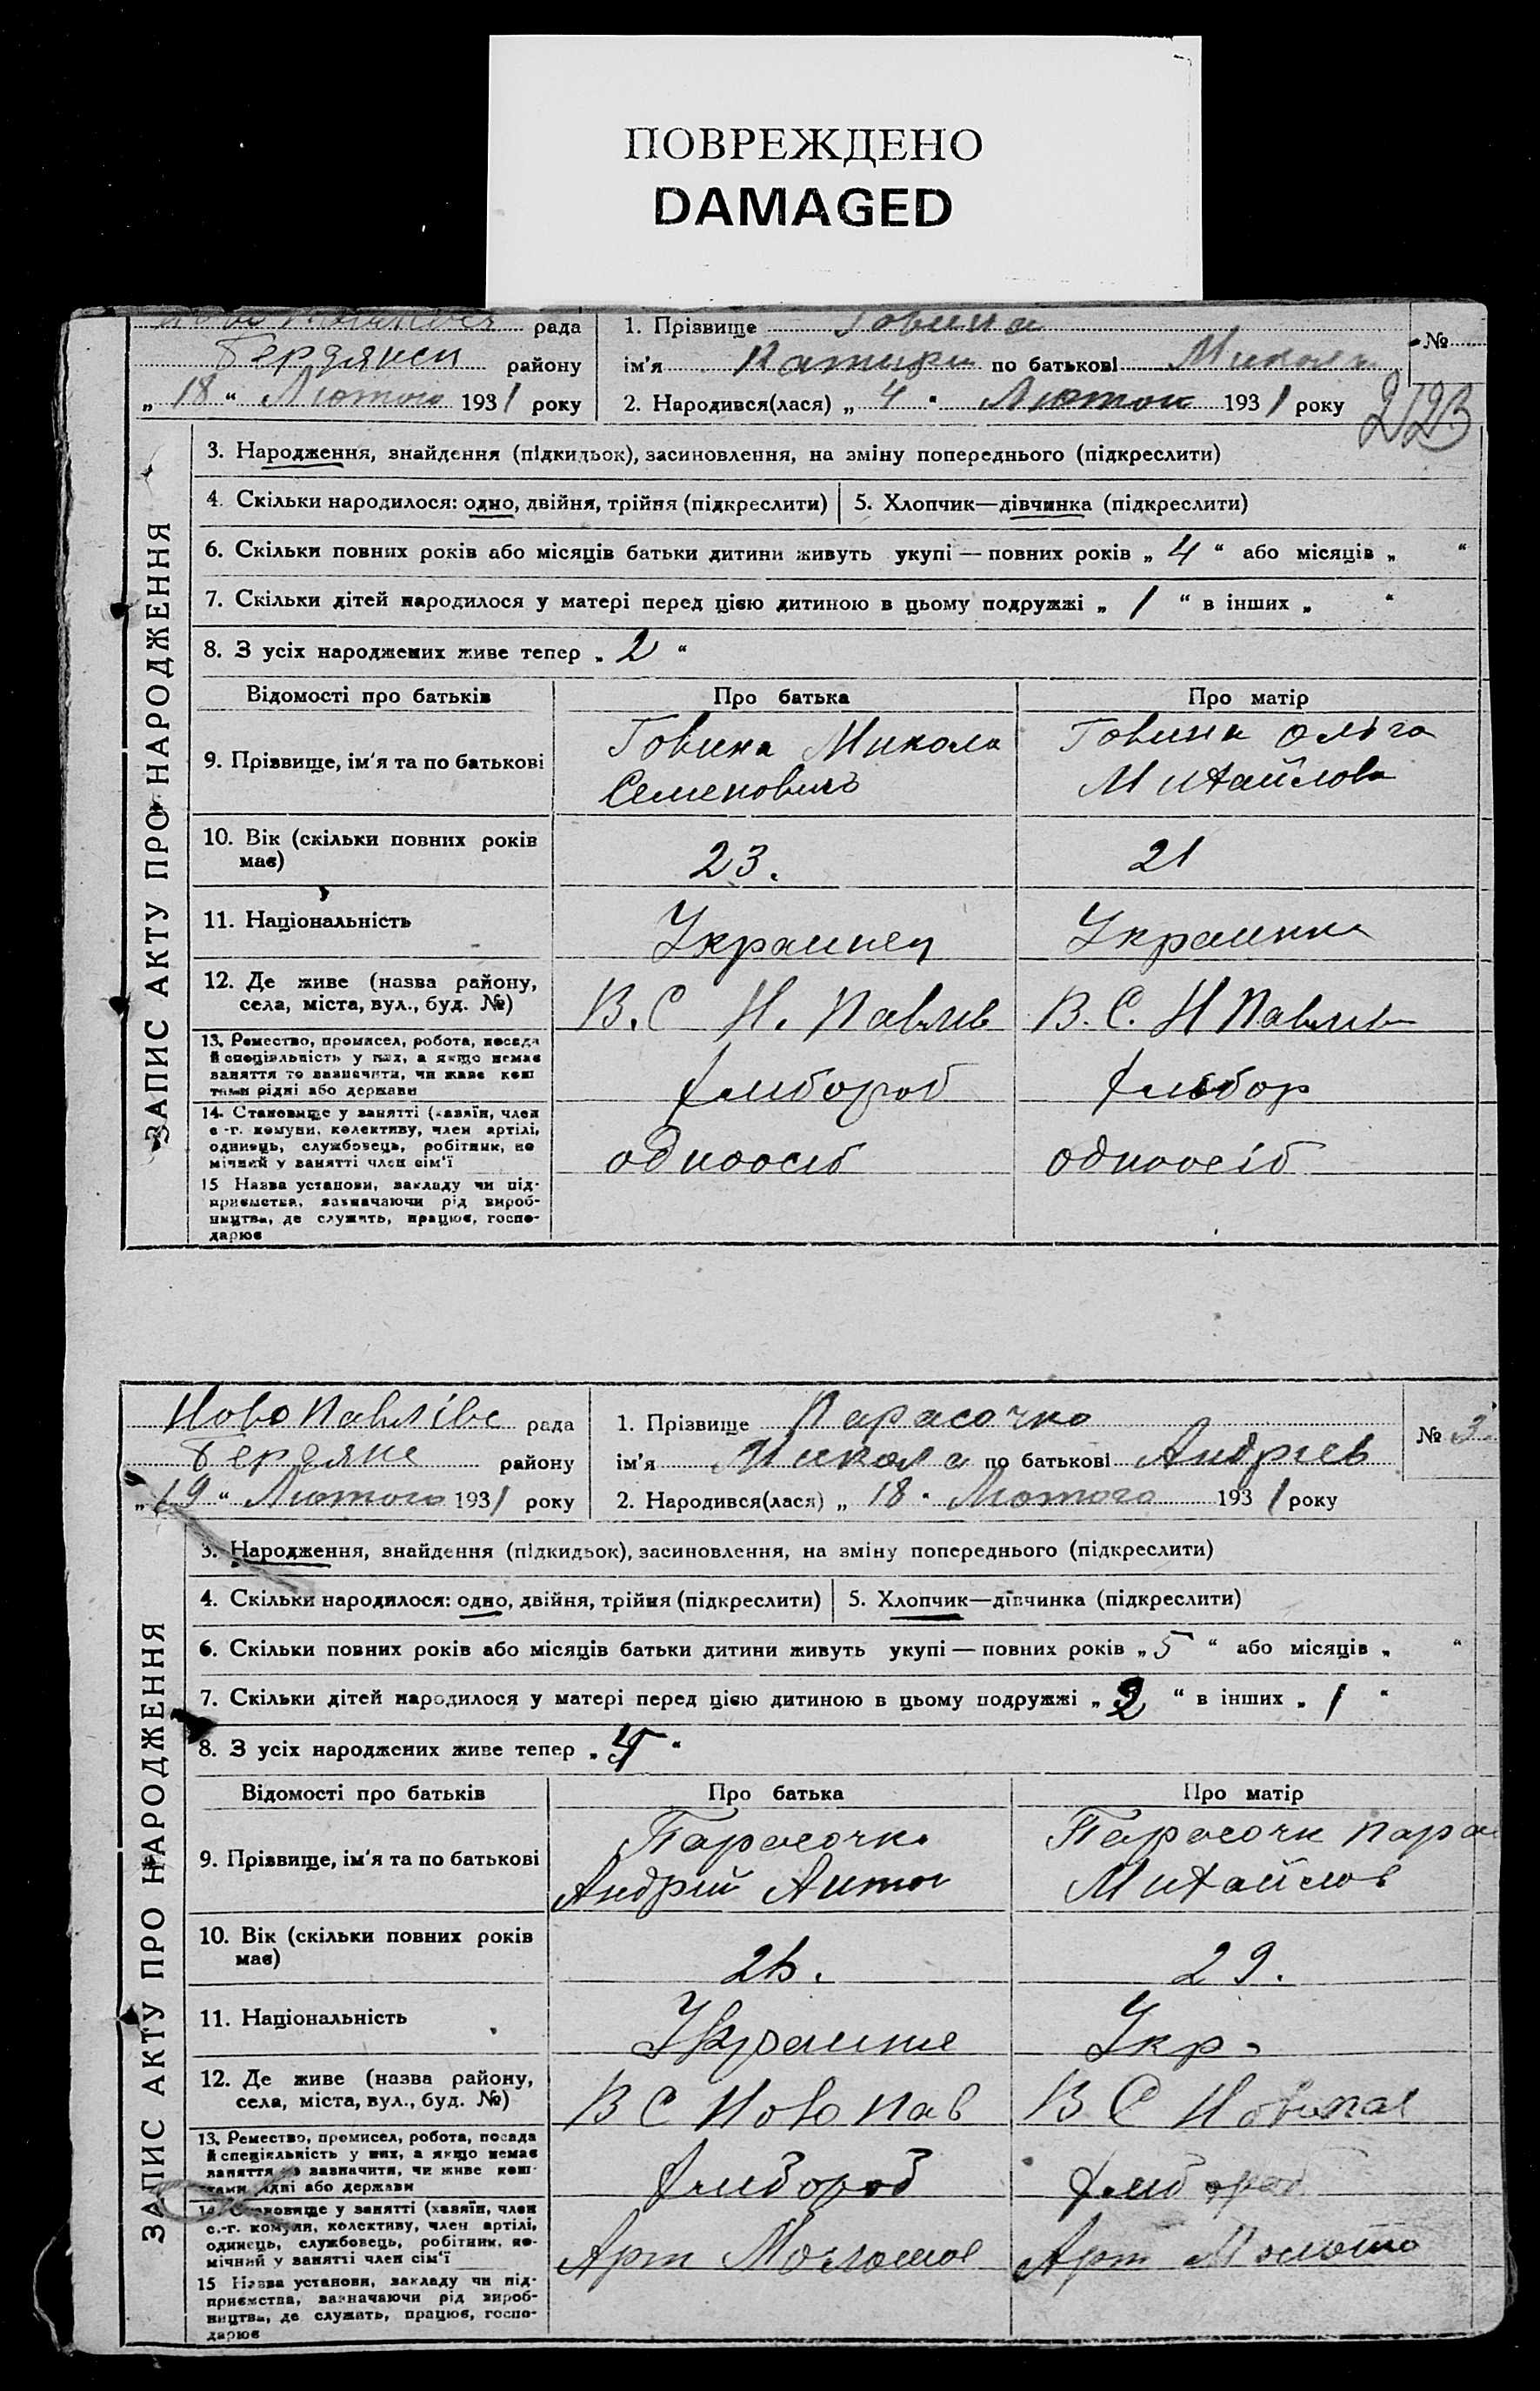 ПОВРЕЖДЕНО
DAMAGED
рада
1. Прізвище Говина
№
Бердянськ району
ім'я по батькові Микола
„ 18 “ Лютого 1931 року
2. Народився(лася) „ 4 “ Лютого 1931 року
ЗАПИС АКТУ ПРО НАРОДЖЕННЯ
3. Народження, знайдення (підкидьок), засиновлення, на зміну попереднього (підкреслити)
4. Скільки народилося: одно, двійня, трійня (підкреслити)
5. Хлопчик—дівчинка (підкреслити)
6. Скільки повних років або місяців батьки дитини живуть укупі — повних років „ 4 “ або місяців „ “
7. Скільки дітей народилося у матері перед цією дитиною в цьому подружжі „ 1 “ в інших „ “
8. З усіх народжених живе тепер „ 2 “
Відомості про батьків
Про батька
Про матір
9. Прізвище, ім'я та по батькові
Говина Микола
Семенович
Говина Ольга
Михайлова
10. Вік (скільки повних років
має)
23.
21
11. Національність
Украинец
Украинка
12. Де живе (назва району,
села, міста, вул., буд. №)
В. С Н. Павлив
В. С. Н Павлив
13. Ремество, промисел, робота, посада
й спеціяльність у них, а якщо немає
заняття то зазначити, чи живе кош
тами рідні або держави
хлибороб
хлібор
14. Становище у занятті (хазяїн, член
с.-г. комуни, колективу, член артілі,
одинець, службовець, робітник, по
мічний у занятті член сім'ї
одноосіб
одноосіб
15 Назва установи, закладу чи під-
приємства, зазначаючи рід вироб-
ництва, де служить, працює, госпо-
дарює
Ново Павлівс рада
1. Прізвище Парасочко
№ 3
Бердянс району
ім'я Микола по батькові Андріев
„ 19 “ Лютого 1931 року
2. Народився(лася) „ 18 “ Лютого 1931 року
ЗАПИС АКТУ ПРО НАРОДЖЕННЯ
3. Народження, знайдення (підкидьок), засиновлення, на зміну попереднього (підкреслити)
4. Скільки народилося: одно, двійня, трійня (підкреслити)
5. Хлопчик—дівчинка (підкреслити)
6. Скільки повних років або місяців батьки дитини живуть укупі — повних років „ 5 “ або місяців „ “
7. Скільки дітей народилося у матері перед цією дитиною в цьому подружжі „ 2 “ в інших „ 1 “
8. З усіх народжених живе тепер „ 4 “
Відомості про батьків
Про батька
Про матір
9. Прізвище, ім'я та по батькові
Парасочк
Андрій Антон
Парасочк Пара
Михайлов
10. Вік (скільки повних років
має)
29.
11. Національність
Украине
Укр.
12. Де живе (назва району,
села, міста, вул., буд. №)
В С Ново Пав
В С Новопав
13. Ремество, промисел, робота, посада
й спеціяльність у них, а якщо немає
заняття то зазначити, чи живе кош-
тами рідні або держави
хлибороб
хлибороб
14. Становище у занятті (хазяїн, член
с.-г. комуни, колективу, член артілі,
одинець, службовець, робітник, по-
мічний у занятті член сім'ї
Арт
Арт
15 Назва установи, закладу чи під-
приємства, зазначаючи рід вироб-
ництва, де служить, працює, госпо-
дарює